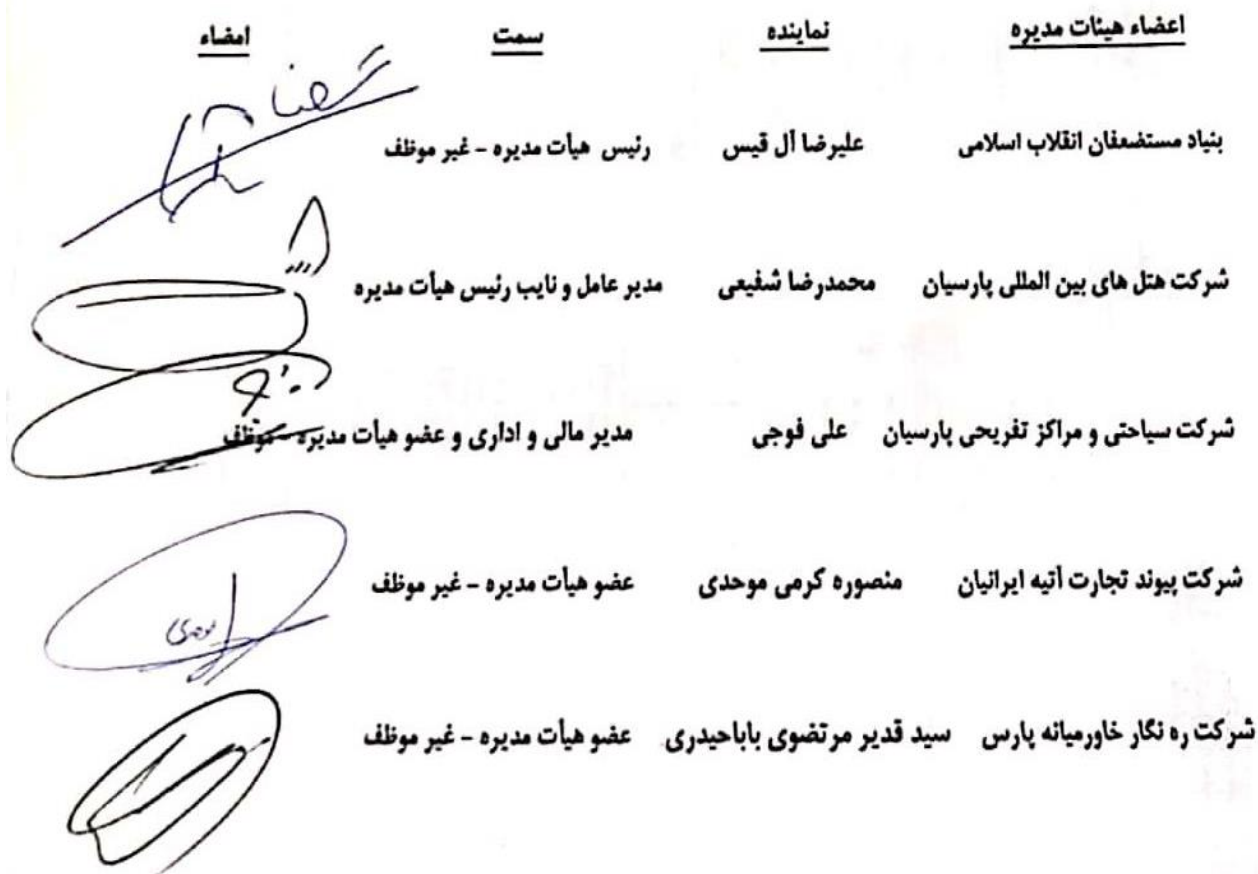 اعضاء هیئات مدیره نماینده سمت امضاء
بنیاد مستضعفان انقلاب اسلامی علیرضا آل قیس رئیس هیأت مدیره - غیر موظف
شرکت هتل های بین المللی پارسیان محمدرضا شفیعی مدیر عامل و نایب رئیس هیأت مدیره
شرکت سیاحتی و مراکز تفریحی پارسیان علی فوجی مدیر مالی و اداری و عضو هیأت مدیره - موظف
شرکت پیوند تجارت آتیه ایرانیان منصوره کرمی موحدی عضو هیأت مدیره - غیر موظف
شرکت ره نگار خاورمیانه پارس سید قدیر مرتضوی باباحیدری عضو هیأت مدیره - غیر موظف